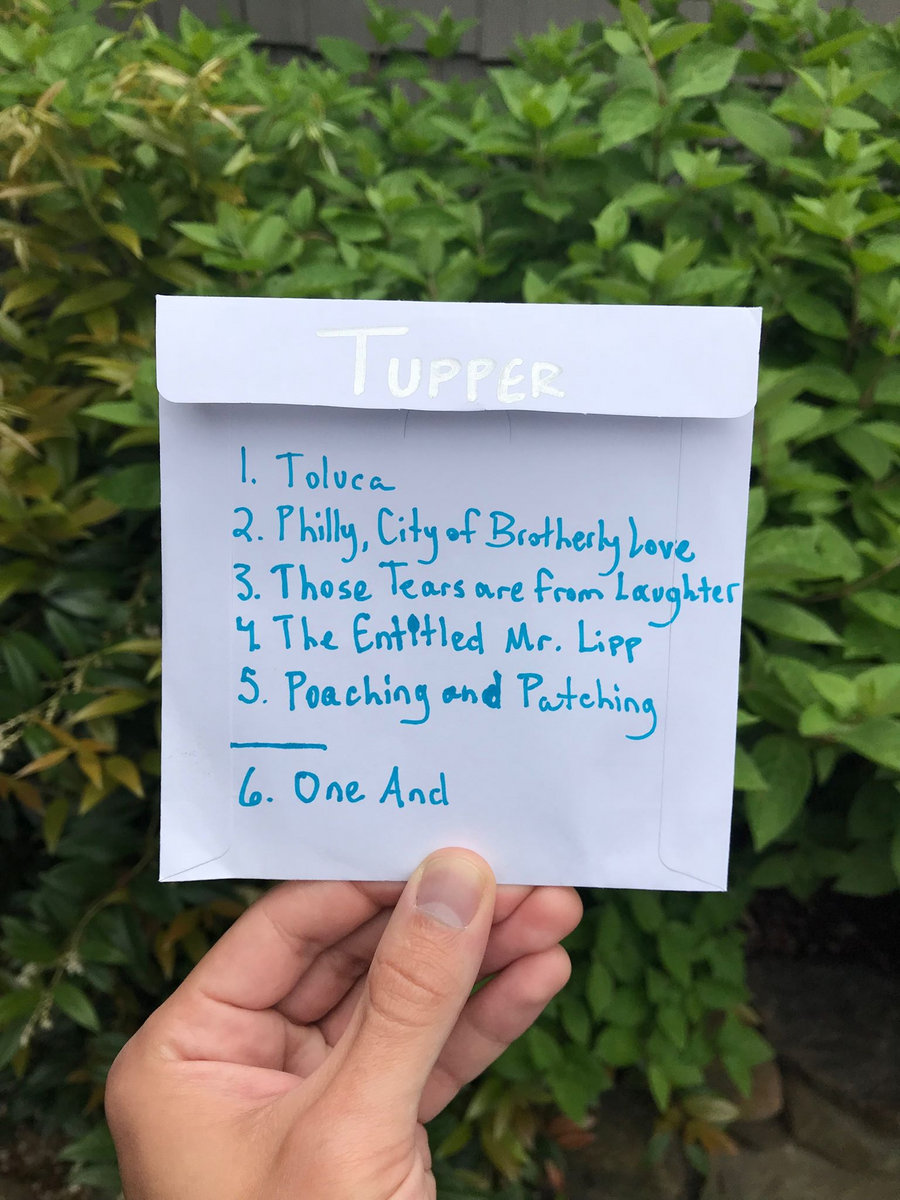 TUPPER
1. Toluca
2. Philly, City of Brotherly Love
3. Those Tears are from Laughter
4. The Entitled Mr. Lipp
5. Poaching and Patching
6. One And